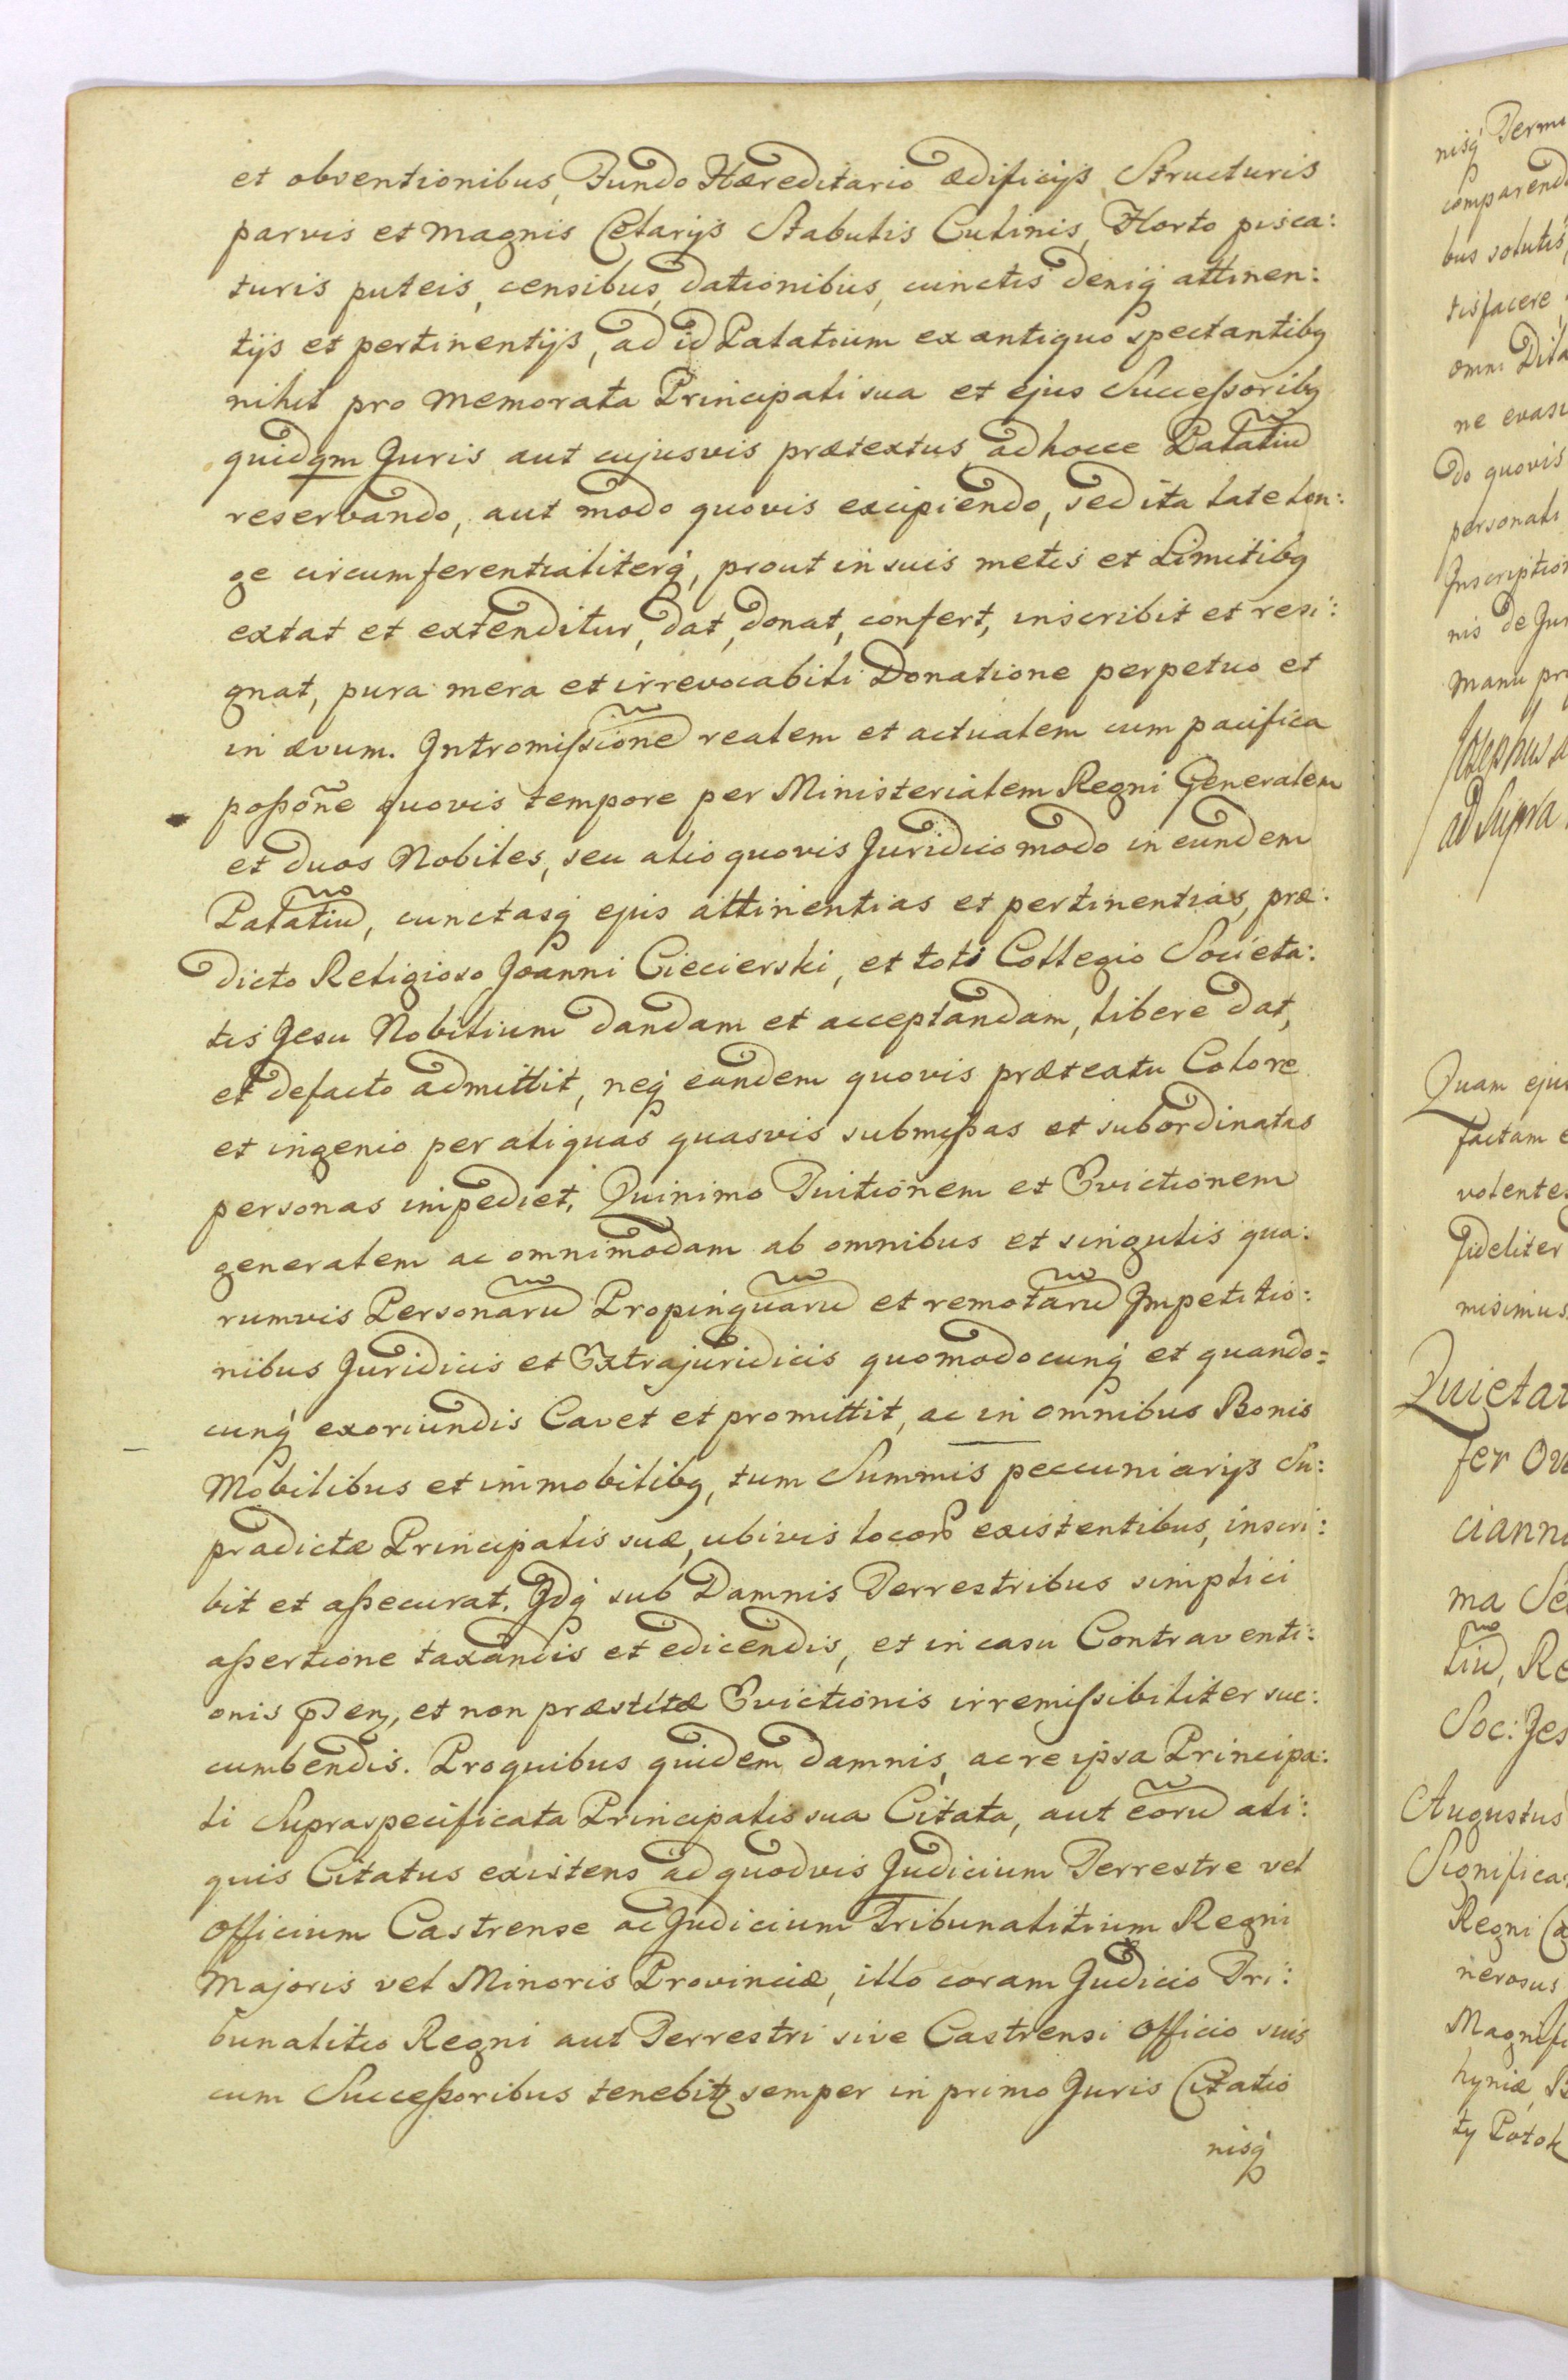 et obventionibus, Fundo Hæreditario ædificijs, Structuris
parvis et magnis Celarijs Stabulis Culinis, Horto pisca:
turis puteis, censibus, dationibus, cunctis deniq attinen:
tijs et pertinentijs, ad id Palatium ex antiquo spectantibq
nihil pro memorata Principali sua et ejus Succeßoribq
quidqm Juris aut cujusvis prætextus ad hocce Palatiũ
reservando, aut modo quovis excipiendo, sed ita late lon:
ge circumferentialiterq, prout in suis metis et Limitibq
extat et extenditur, dat, donat, confert, inscribit et resi:
gnat, pura mera et irrevocabili Donatione perpetuo et
in ævum. Intromißionẽ realem et actualem cum pacifica
poßoñe quovis tempore per Ministerialem Regni Generalem
et duos Nobiles, seu alio quovis Juridico modo in eundem
Palatiũ, cunctasq ejus attinentias et pertinentias, præ:
dicto Religioso Joanni Ciecierski, et toti Collegio Societa:
tis Jesu Nobilium dandam et acceptandam, libere dat,
et defacto admittit, neq eandem quovis prætextu Colore
et ingenio per aliquas quasvis submißas et subordinatas
personas impediet. Quinimo Tuitionem et Evictionem
generalem ac omnimodam ab omnibus et singulis qua:
rumvis Personarũ Propinquarũ et remotarũ Impetitio:
nibus Juridicis et Extrajuridicis quomodocunq et quando=
cunq exoriundis Cavet et promittit, ac in omnibus Bonis
Mobilibus et immobilibq, tum Summis peccuniarijs Su:
pradictæ Principalis suæ, ubivis locorũ existentibus, inscri:
bit et aßecurat. Idq sub Damnis Terrestribus simplici
aßertione taxandis et edicendis, et in casu Contraventi:
onis et non præstitæ Evictionis irremißibiliter suc:
cumbendis. Pro quibus quidem damnis, ac re ipsa Principa:
li Supraspecificata Principalis sua Citata, aut eorũ ali:
quis Citatus existens ad quodvis Judicium Terrestre vel
Officium Castrense ac Judicium Tribunalitium Regni
Majoris vel Minoris Provinciæ, illo coram Judicio Tri:
bunalitio Regni aut Terrestri sive Castrensi Officio suis
cum Succeßoribus tenebitq semper in primo Juris Citatio
nisq
nisq Termi
comparend
bus solutis,
tisfacere
omni Dila
ne evasi
do quovis
personali
Inscription
nis de Jur
manu pr
Josephus
ad Supra
Quam ejus
factam e
volentes
Fideliter
misimus
Quietat
fer Ow
ciann
ma Se
tiũ, Re
Soc: Jes
Augustus
Significa
Regni
nerosus
Magnifi
hyniæ, B
ty Potok